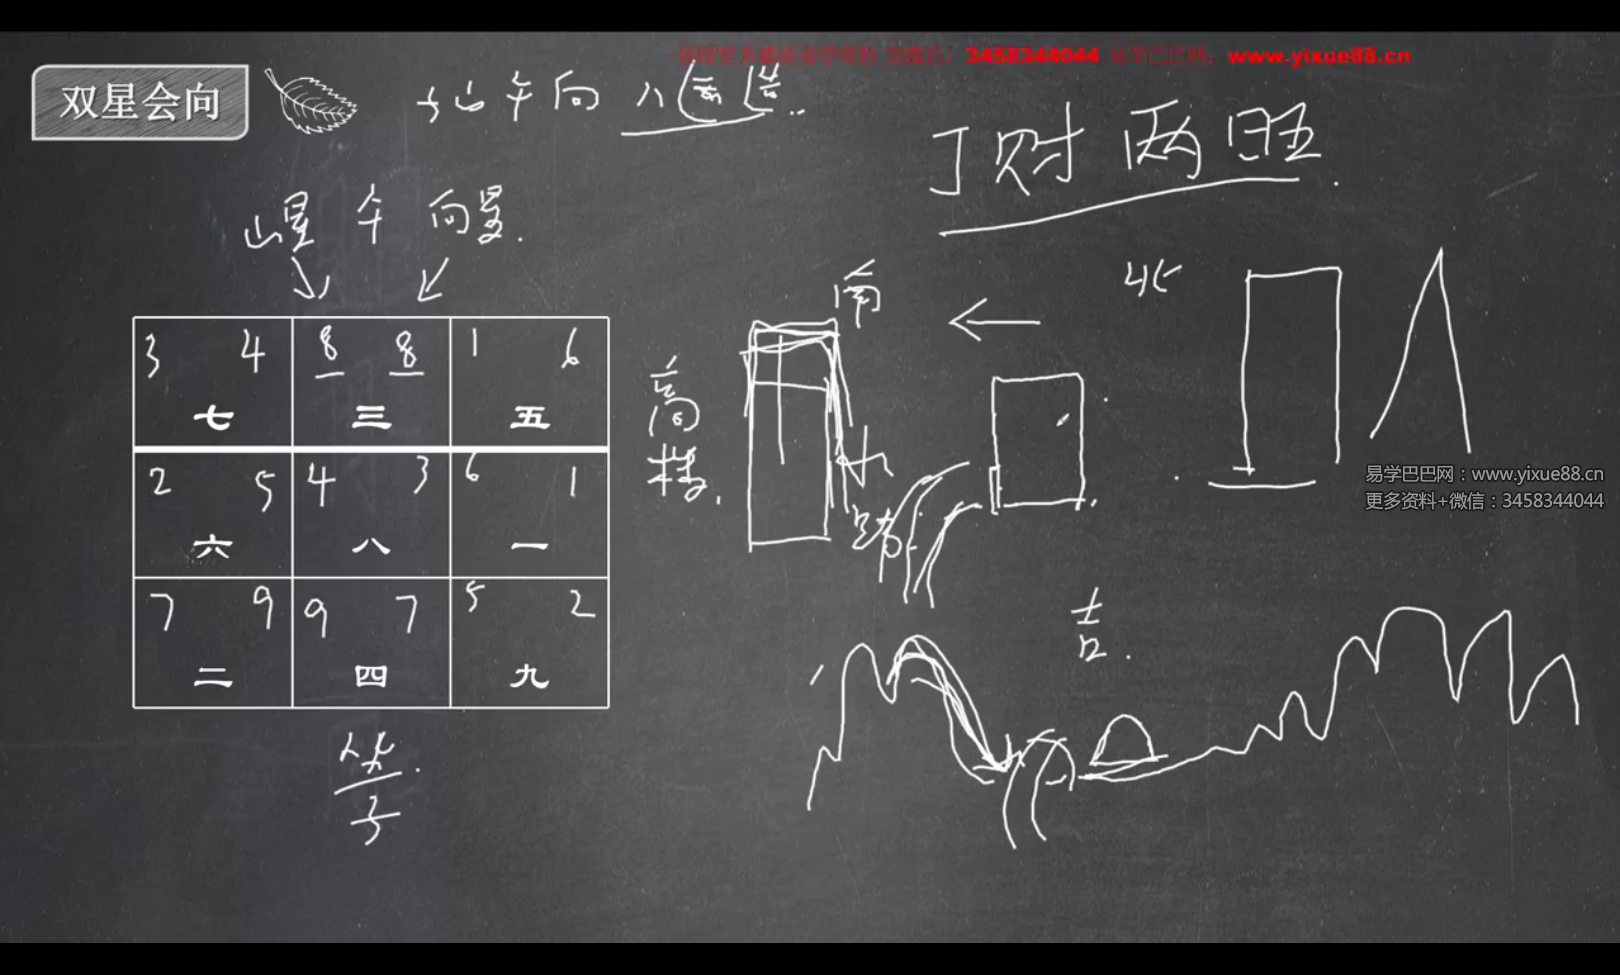 3458344044 易学巴巴网：www.yixue88.cn
双星会向
山午向 八
丁财两旺
山星 午 向星
南
北
3 4 8 8 1 6
七 三 五
高楼
2 5 4 3 6 1
六 八 一
水
路
易学巴巴网：www.yixue88.cn
更多资料+微信：3458344044
7 9 9 7 5 2
二 四 九
吉
坐
子